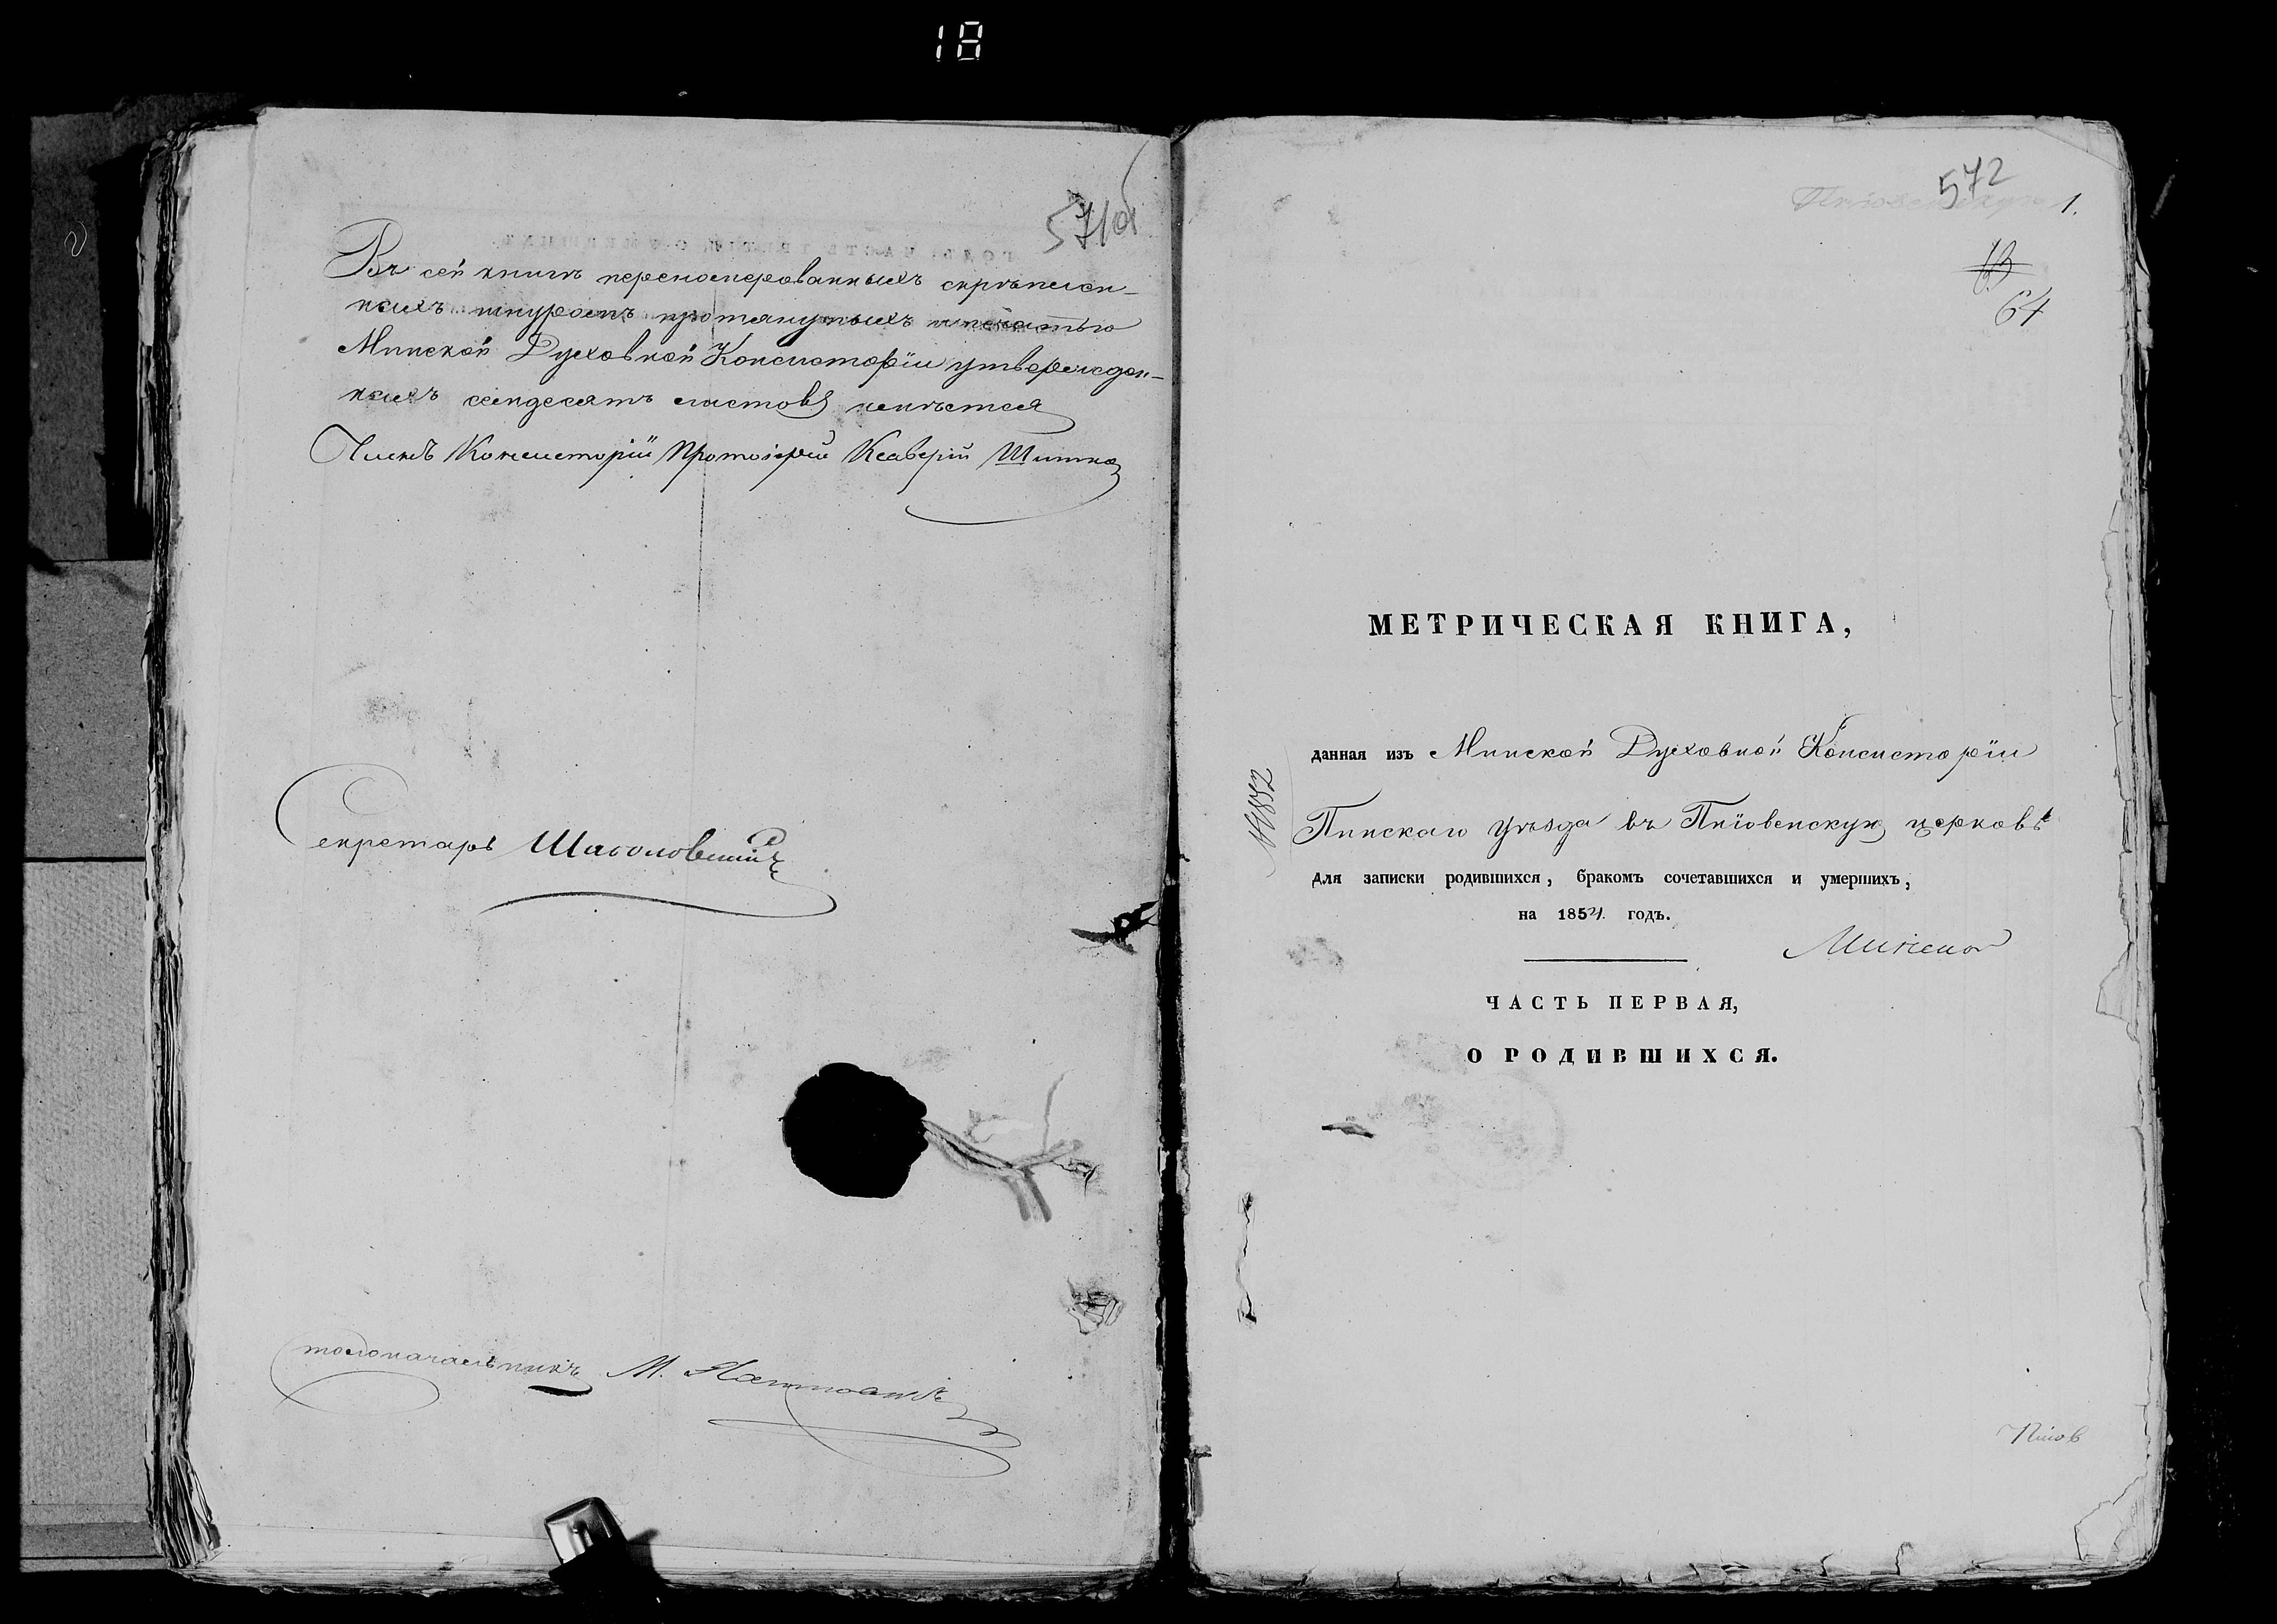 18
571об
Въ сей книгѣ переномерованныхъ скрѣплен-
ныхъ шнуромъ протянутыхъ и печатью
Минской Духовной Консисторіи утвержден-
ныхъ семдесятъ листовъ имѣется
Членъ Консисторіи Протоіерей Ксаверій
Секретарь
Столоначальникъ М.
572
1.
13
64
МЕТРИЧЕСКАЯ КНИГА,
данная изъ Минской Духовной Консисторіи
Пинскаго уѣзда въ Пніовенскую церковь
для записки родившихся, бракомъ сочетавшихся и умершихъ,
на 1854 годъ.
ЧАСТЬ ПЕРВАЯ,
О РОДИВШИХСЯ.
Пніов